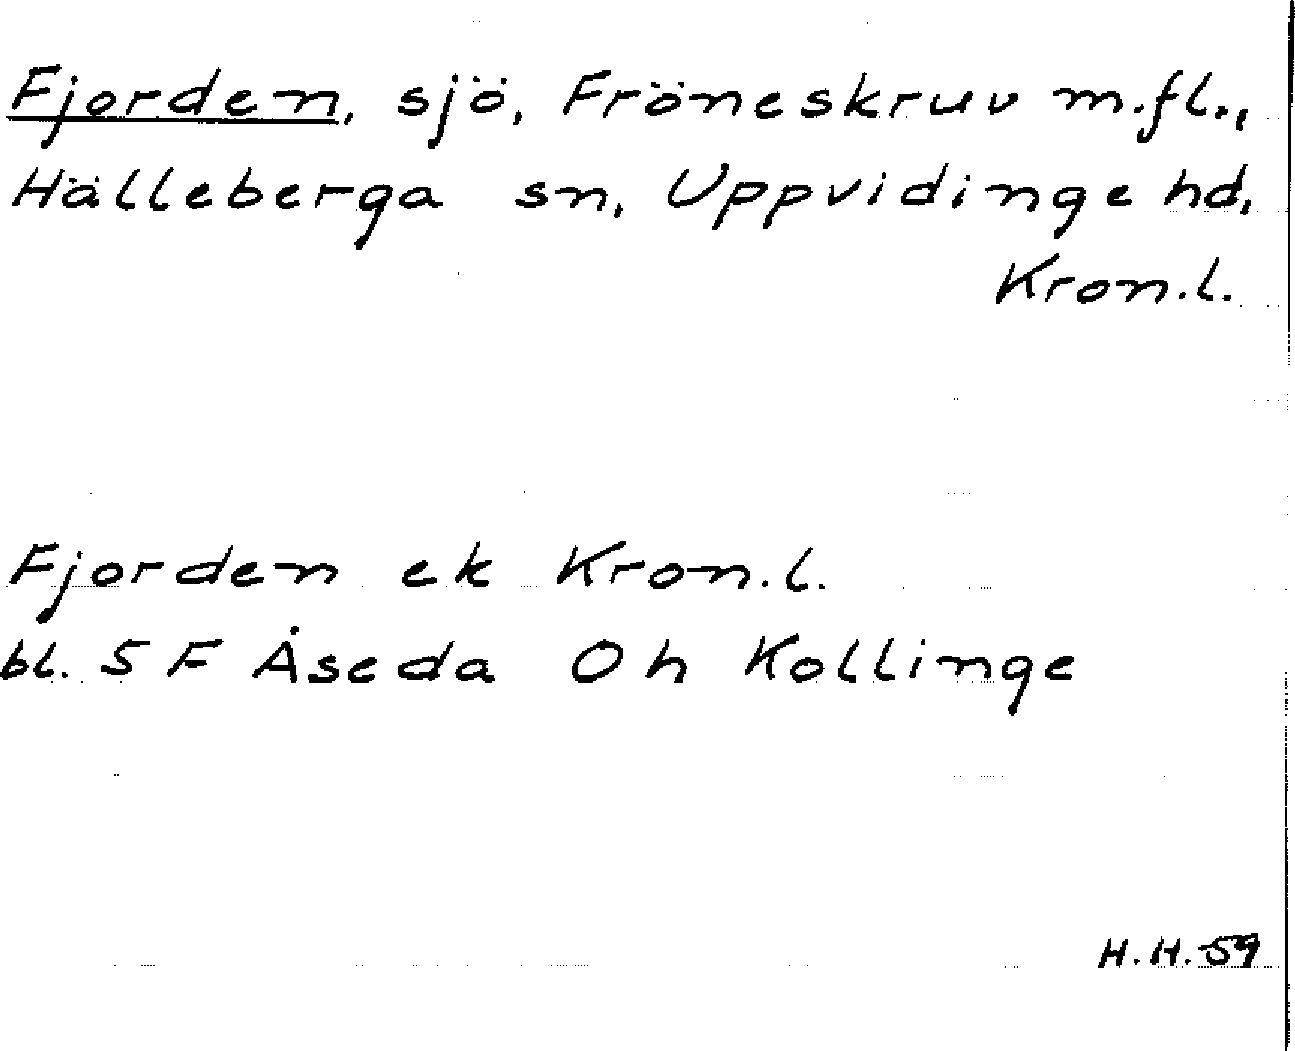 Fjorden, sjö, Fröneskruv m.fl.,
Hälleberga sn, Uppvidinge hd,
Kron.l.
Fjorden ek Kron.l.
bl. 5 F Åseda Oh Kollinge
H.H.59